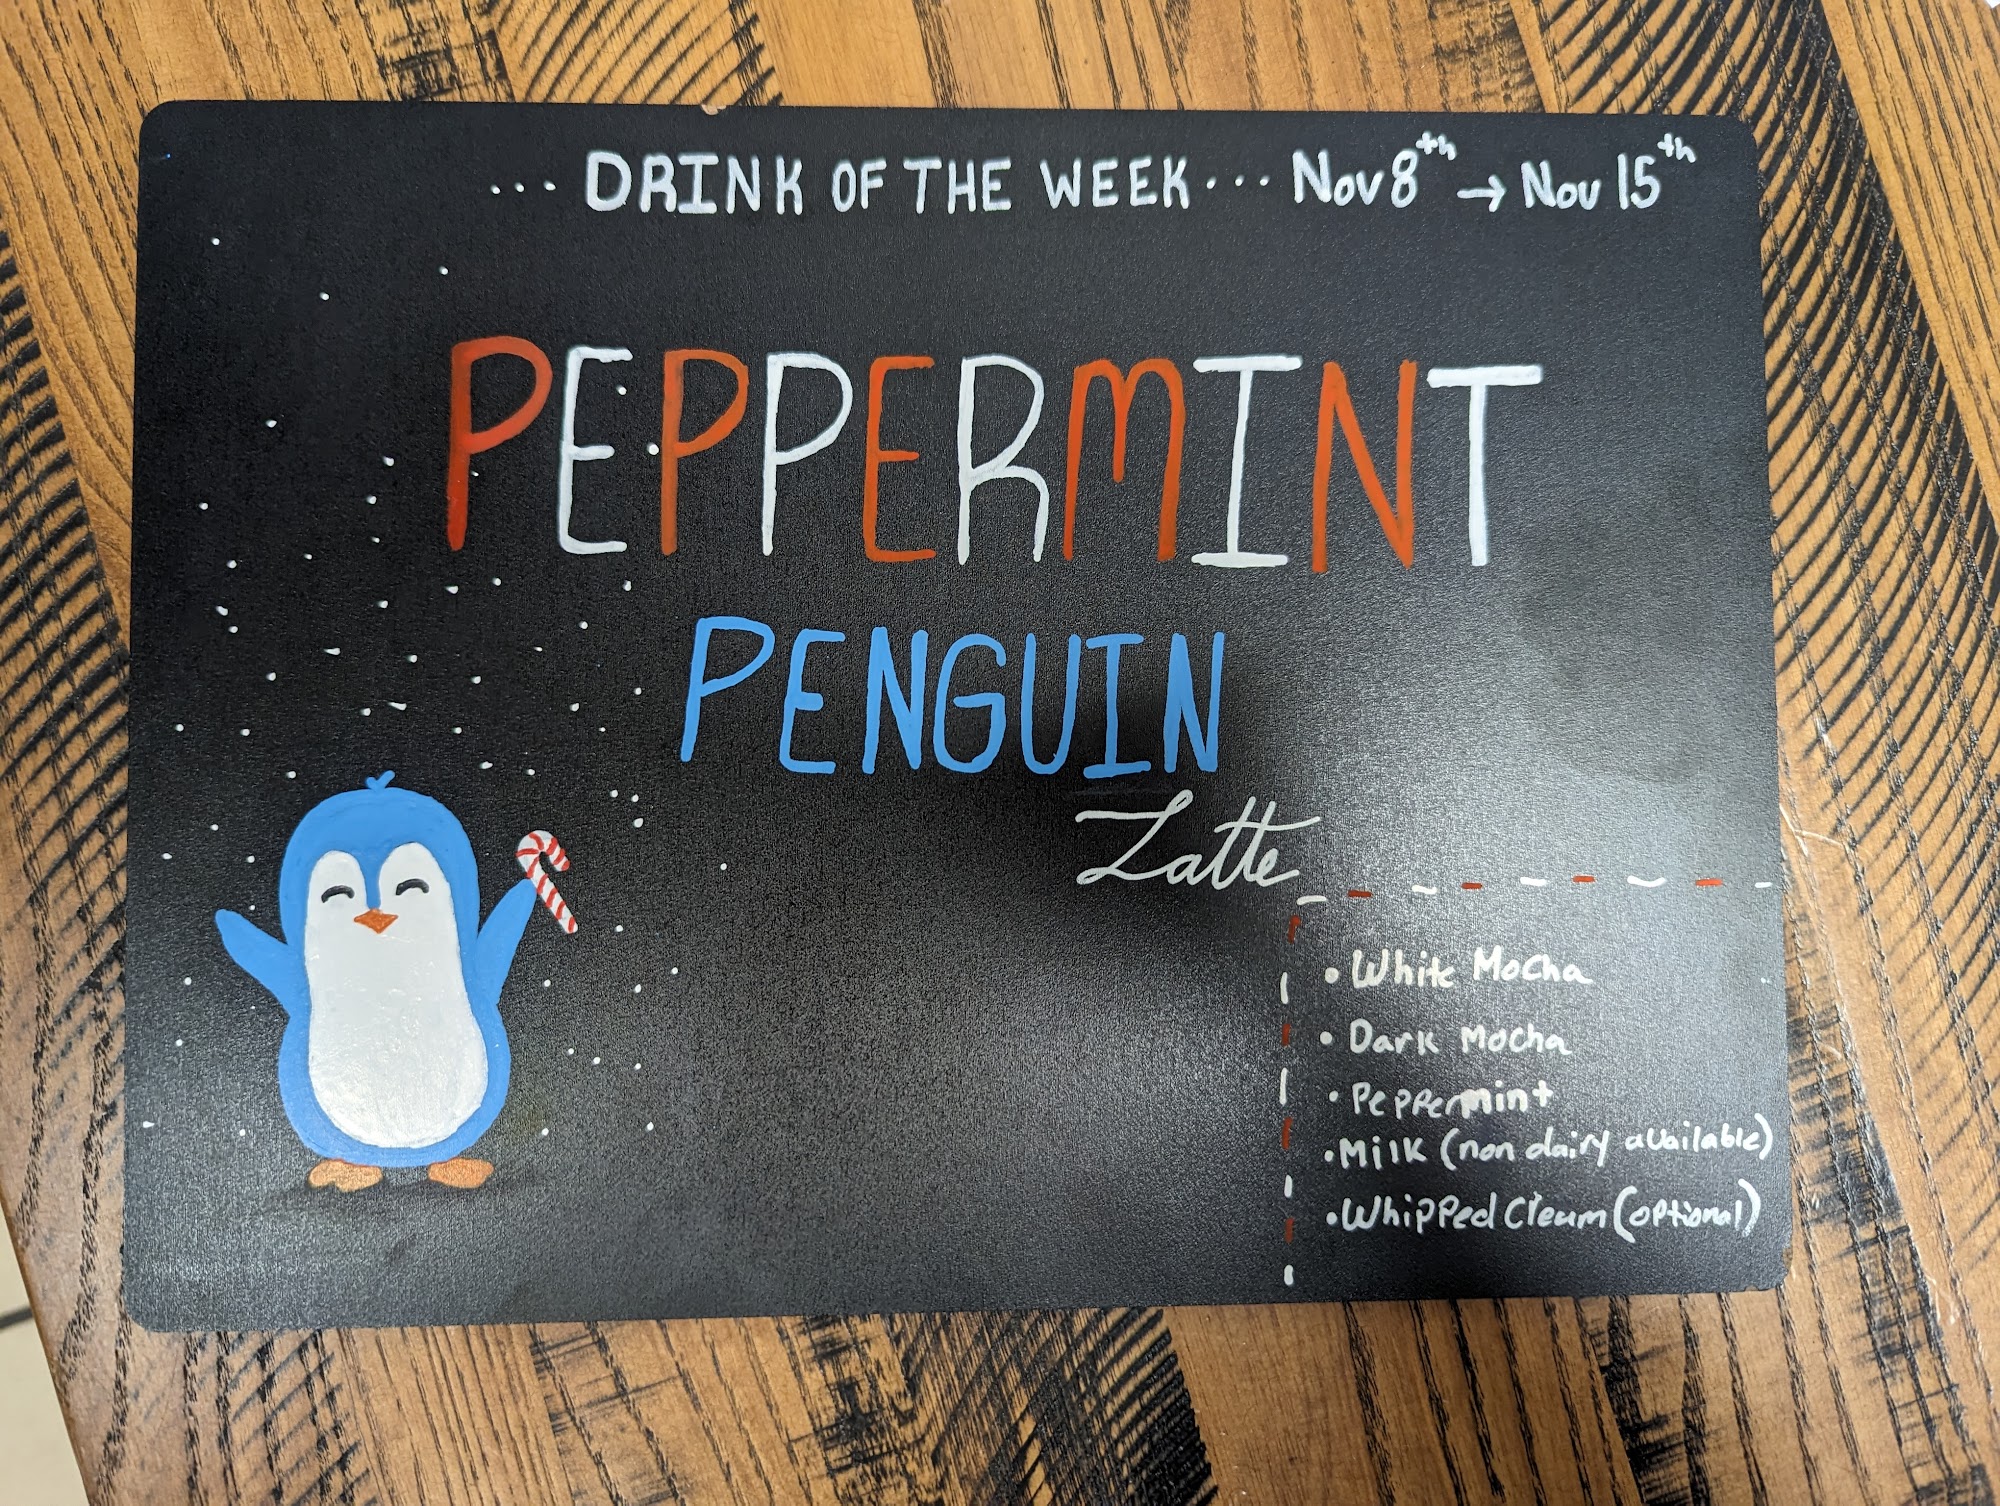 ... DRINK OF THE WEEK ... Nov 8th → Nov 15th
PEPPERMINT
PENGUIN
Latte
• White Mocha
• Dark Mocha
• Peppermint
• Milk (non dairy available)
• Whipped Cream (optional)